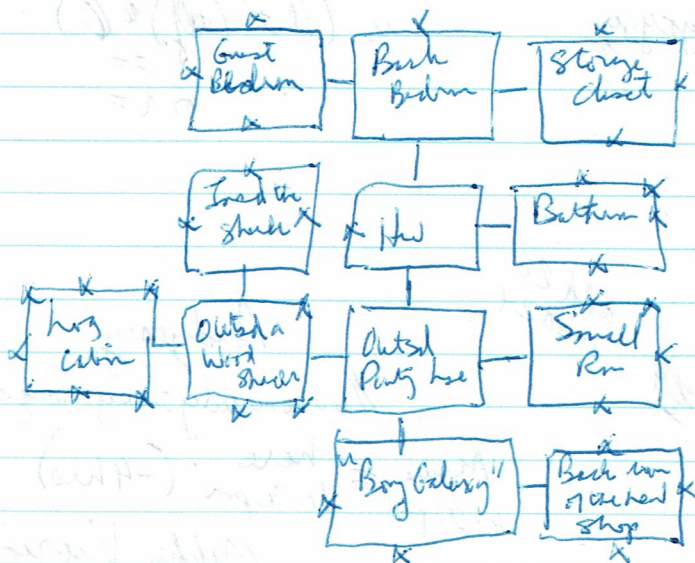 Guest
Bedroom
Back
Bedroom
Storage
Closet
Inside the
Shack
Bathroom
Log
Cabin
Outside a
Wood
Shack
Outside
Party
Small
Rm
"Bong Galaxy"
Back room
of the head
shop